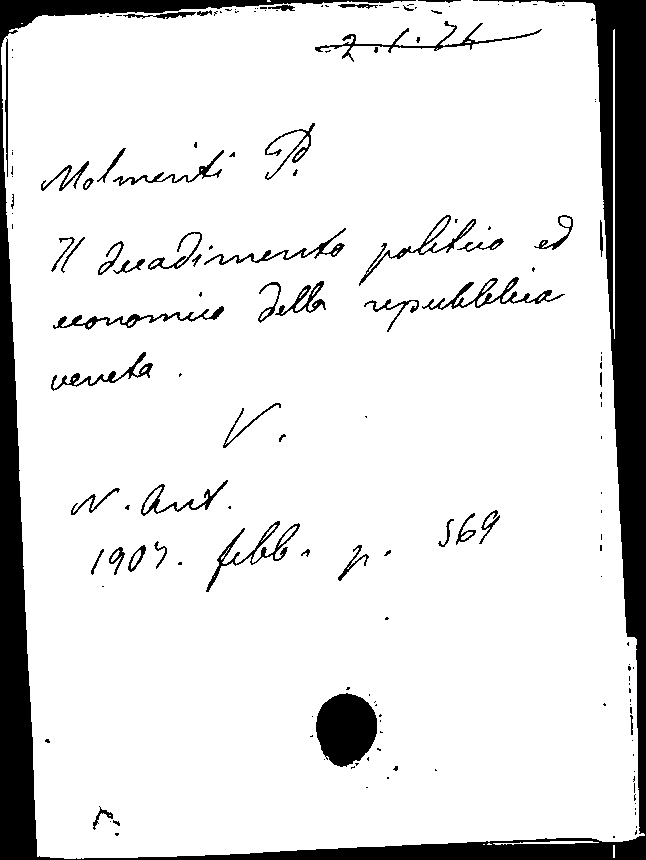 2.1.74
Molmenti P.
Il decadimento politico ed
economico della repubblica
veneta.
V.
N. Ant.
1907. febb. p. 569